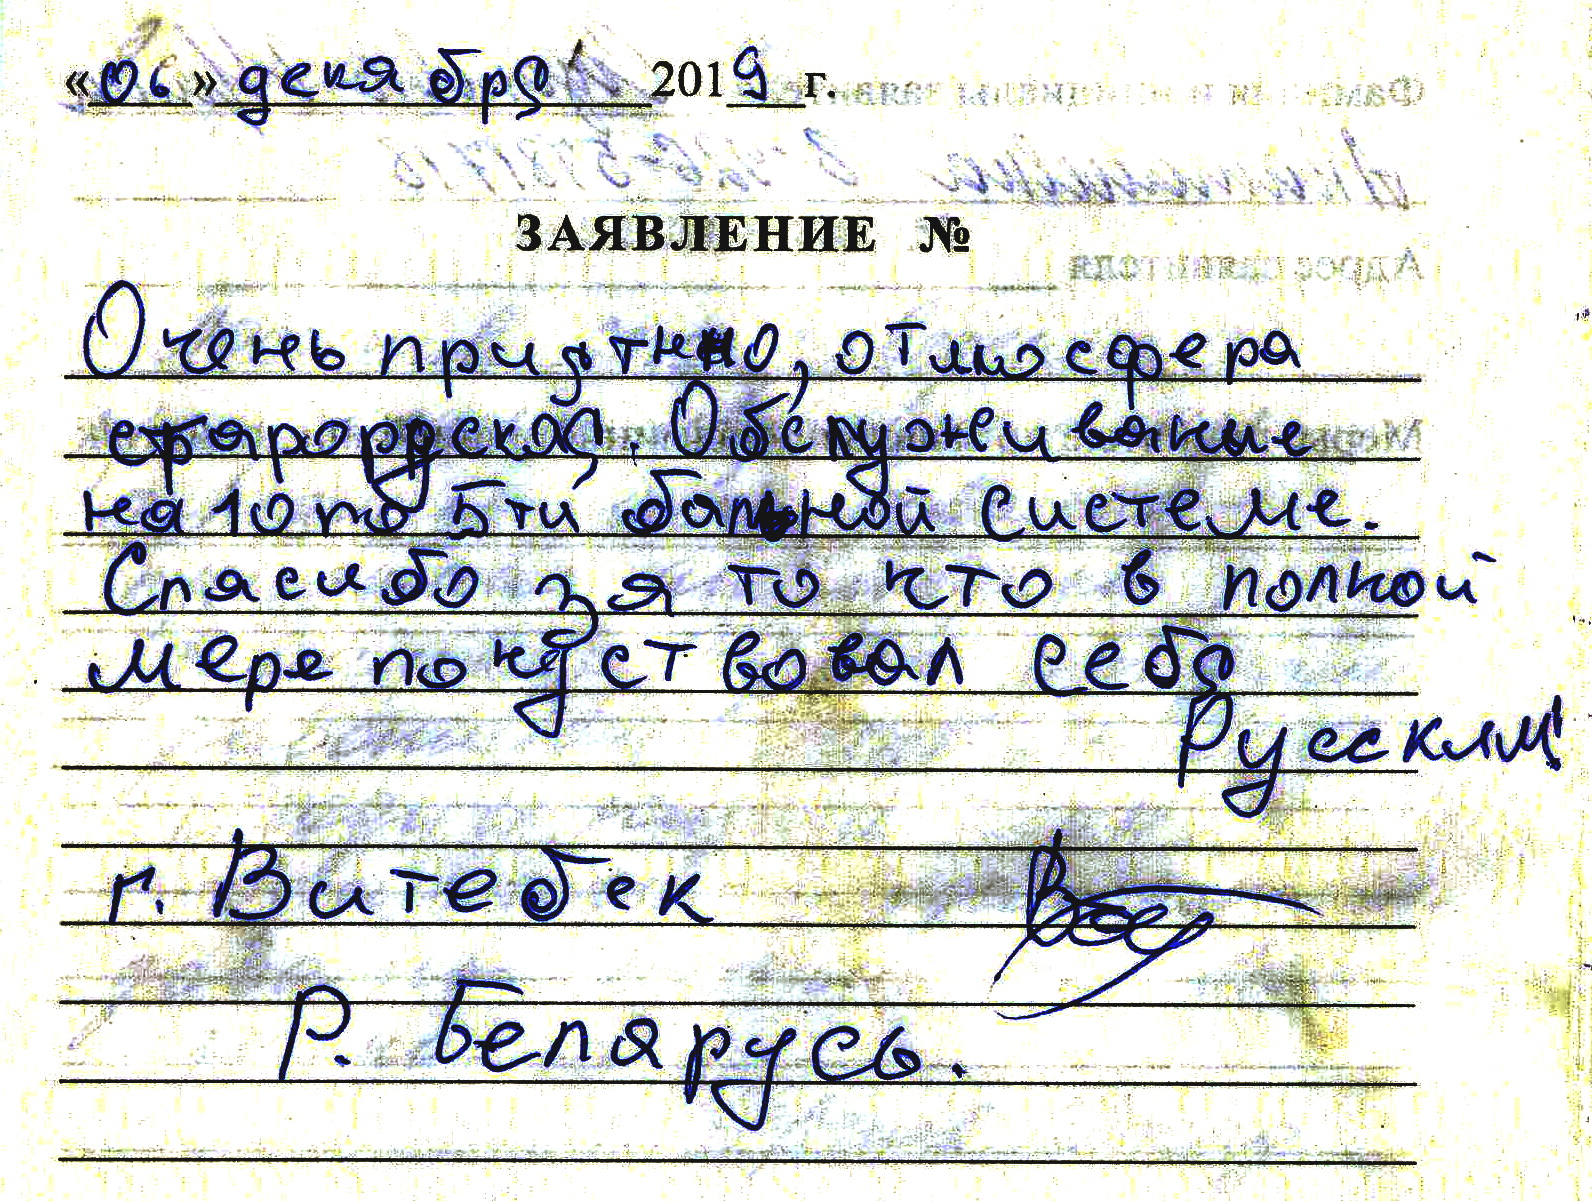 «06» декабря 2019 г.
ЗАЯВЛЕНИЕ №
Очень приятно, отмосфера
старорусская. Обслуживание
на 10 по 5ти бальной системе.
Спасибо за то что в полной
мере почуствовал себя
Русским!
г. Витебск
Р. Беларусь.